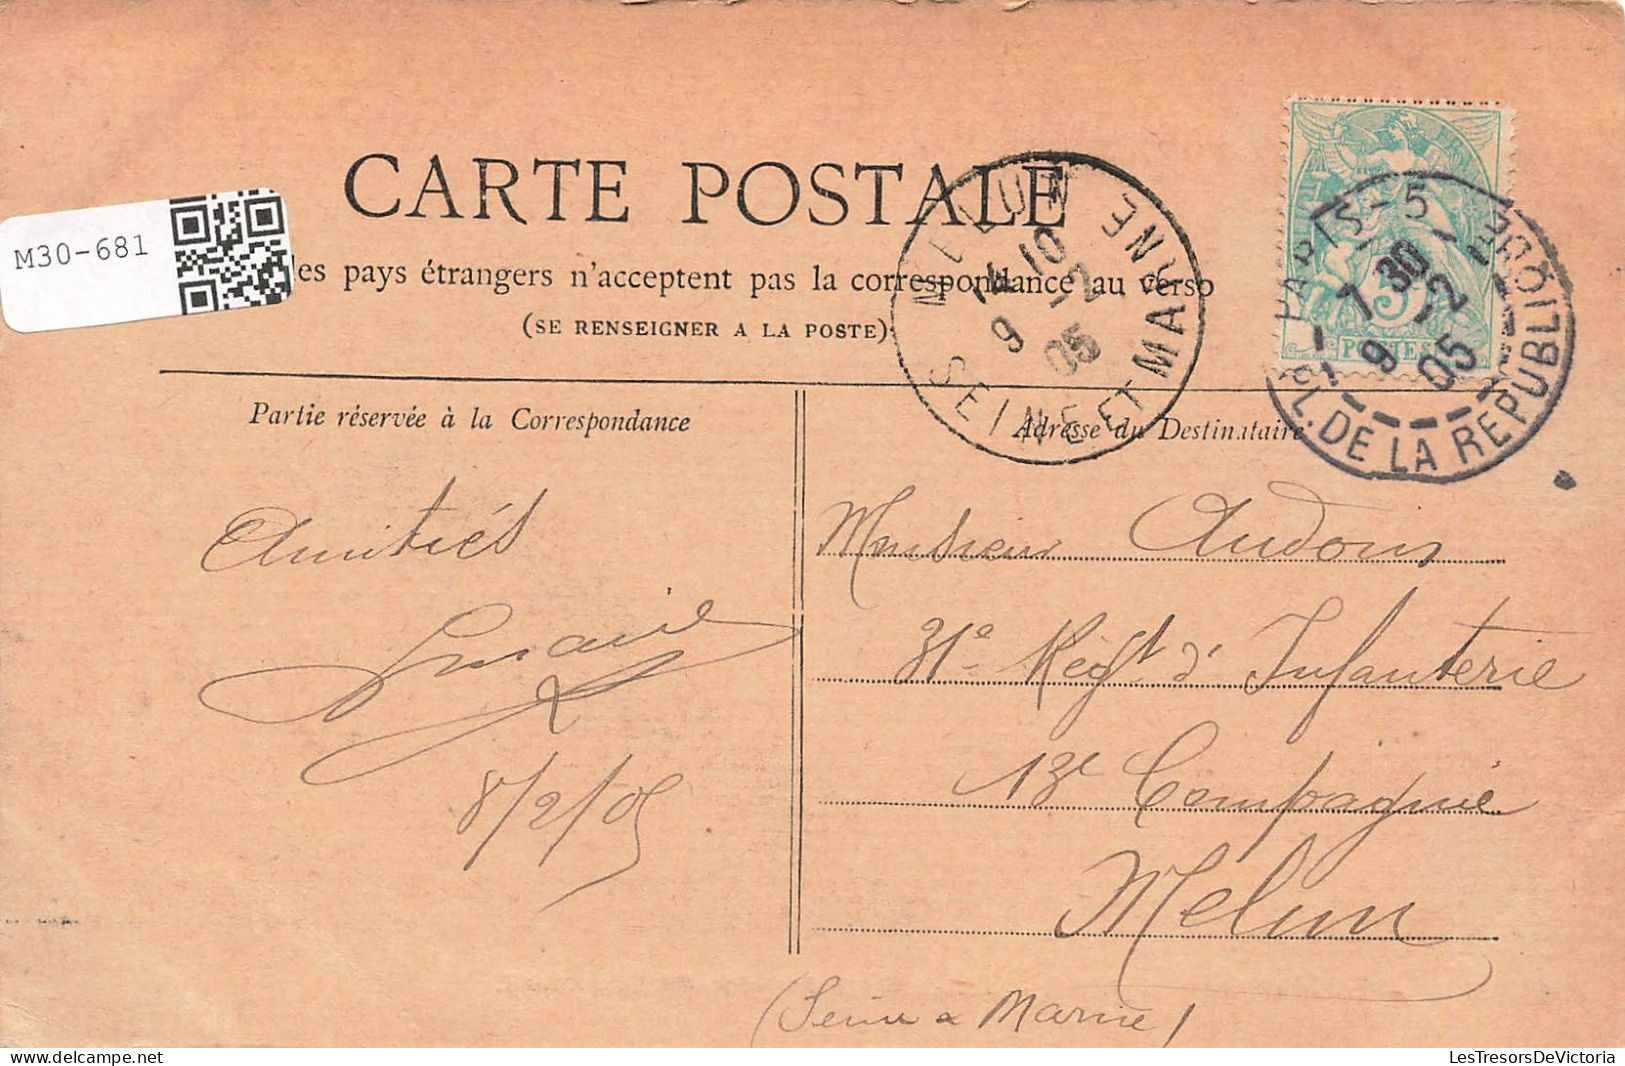 CARTE POSTALE
M30-681
les pays étrangers n'acceptent pas la correspondance au verso
(SE RENSEIGNER A LA POSTE)
MELUN
SEINE ET MARNE
10
9 -2
05
PARIS-5
PL. DE LA REPUBLIQUE
7 30
9 2
05
5
POSTES
Partie réservée à la Correspondance
Adresse du Destinataire
Amitiés
8/2/05
Monsieur Audouin
31e Régt d'Infanterie
13e Compagnie
Melun
(Seine & Marne)
LesTresorsDeVictoria